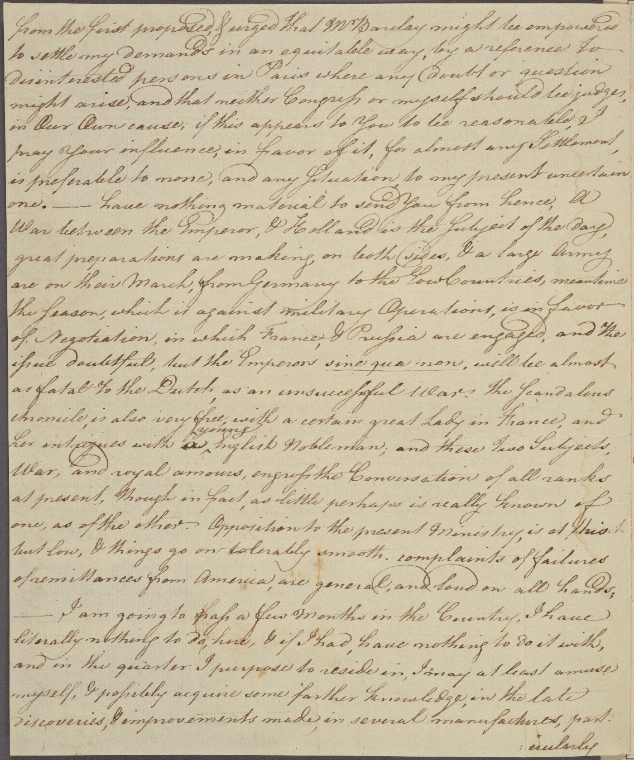 from the first proposed, & urged that Mr Barclay might be empowered
to settle my demands in an equitable way, by a reference to
disinterested persons in Paris where any doubt or question
might arise, and that neither Congress or myself should be judges,
in Our Own cause; if this appears to You to be reasonable, I
pray Your influence, in favor of it, for almost any Settlement,
is preferable to none, and any Situation, to my present uncertain
one. — have nothing material to send You from hence, A
War between the Emperor, & Holland is the Subject of the day,
great preparations are making on both sides, & a large Army
are on their March, from Germany to the Low Countries, meantime
the season, which is against military Operations, is in favor
of Negotiation, in which France & Prussia are engaged, and the
issue doubtful, but the Emperors sine qua non, will be almost
as fatal to the Dutch, as an unsuccessful War: the scandalous
chronicle is also very free, with a certain great Lady in France, and
her intrigues with a young English Nobleman, and these two Subjects,
War, and royal amours, engross the Conversation of all ranks
at present, though in fact, as little perhaps is really known of
one, as of the other. Opposition to the present Ministry, is at this t.
but low, & things go on tolerably smooth. complaints of failures
of remittances from America, are general, and loud on all hands;
— I am going to pass a few Months in the Country, I have
literally nothing to do, here, & if I had, have nothing to do it with,
and in the quarter I purpose to reside in, I may at least amuse
myself, & possibly acquire some farther knowledge, in the late
discoveries, & improvements made, in several manufactures, part:
:icularly